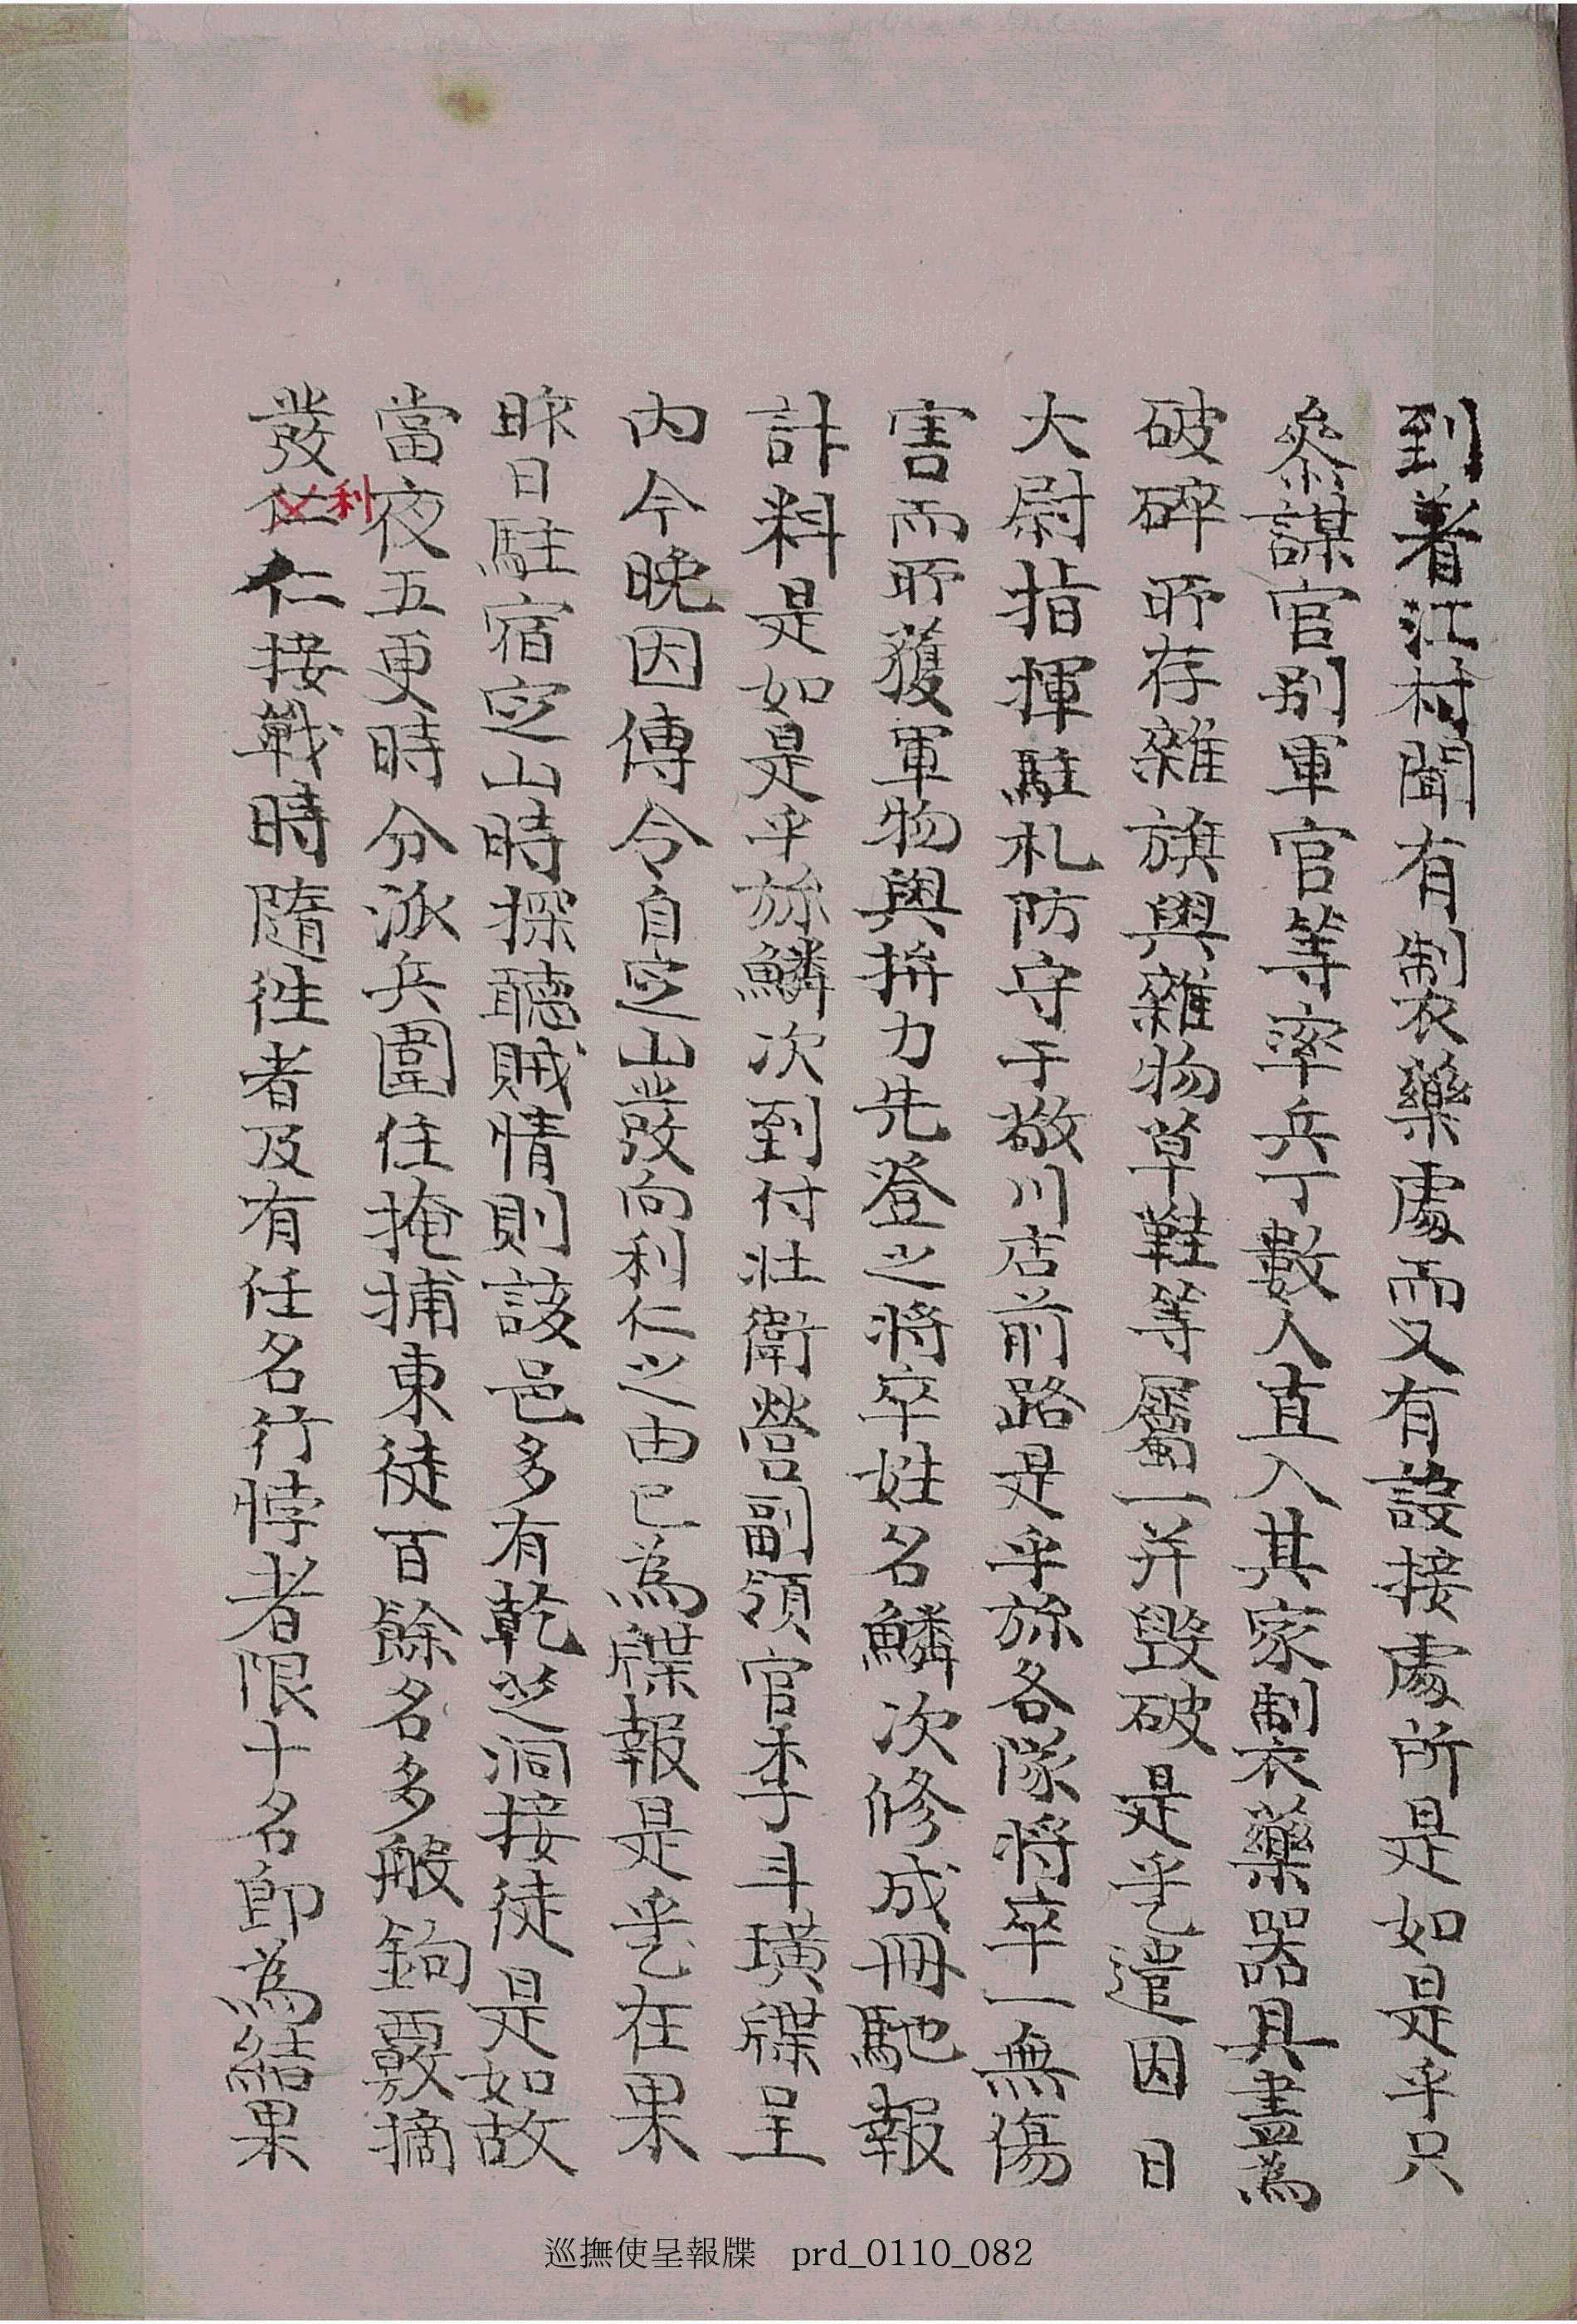 到着江村聞有制衣藥處而又有設接處所是如是乎只
叅謀官別軍官等率兵丁數人直入其家制衣藥器具盡爲
破碎所存雜旗與雜物草鞋等屬一并毀破是乎乙遣因日
大尉指揮駐札防守于敬川店前路是乎旀各隊將卒一無傷
害而所獲軍物與拚力先登之將卒姓名鱗次修成冊馳報
計料是如是乎旀鱗次到付壯衛營副領官李斗璜牒呈
內今晚因傳令自定山發向利仁之由已爲牒報是乎乙在果
昨日駐宿定山時探聽賊情則該邑多有乾芝洞接徒是如故
當夜五更時分派兵圍住掩捕東徒百餘名多般鉤覈摘
發仁仁接戰時隨徃者及有任名行悖者限十名卽爲結果
利
巡撫使呈報牒 prd_0110_082